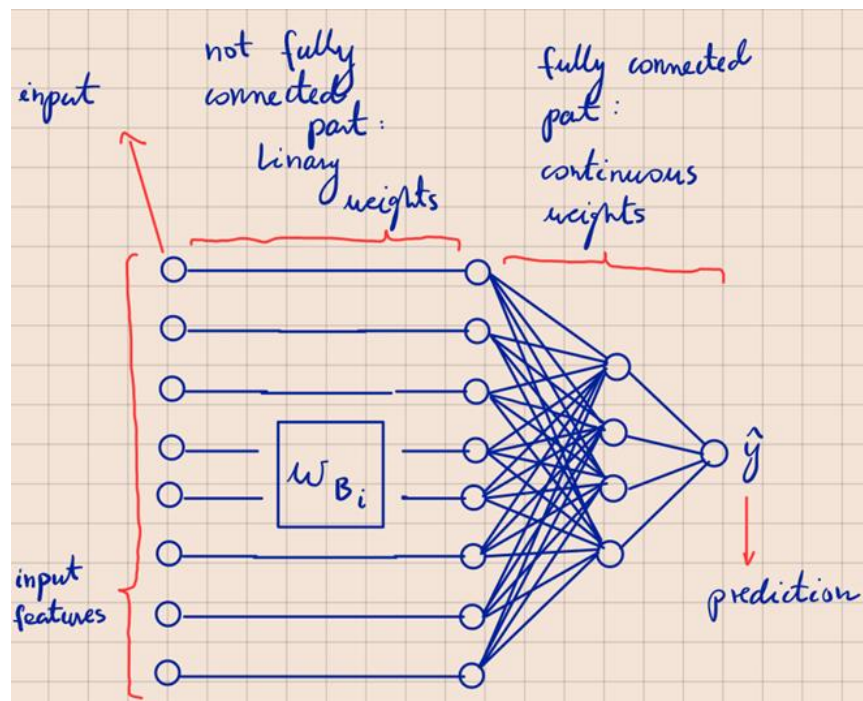 input
not fully
connected
part:
binary
weights
fully connected
part:
continuous
weights
w_{B_i}
ŷ
input
features
prediction